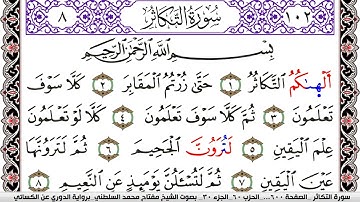 ٨ سُورَةُ التَّكَاثُرِ ١٠٢
بِسْمِ اللَّهِ الرَّحْمَٰنِ الرَّحِيمِ
أَلْهَىٰكُمُ التَّكَاثُرُ ١ حَتَّىٰ زُرْتُمُ الْمَقَابِرَ ٢ كَلَّا سَوْفَ
تَعْلَمُونَ ٣ ثُمَّ كَلَّا سَوْفَ تَعْلَمُونَ ٤ كَلَّا لَوْ تَعْلَمُونَ
عِلْمَ الْيَقِينِ ٥ لَتُرَوُنَّ الْجَحِيمَ ٦ ثُمَّ لَتَرَوُنَّهَا
عَيْنَ الْيَقِينِ ٧ ثُمَّ لَتُسْـَٔلُنَّ يَوْمَئِذٍ عَنِ النَّعِيمِ ٨
سورة التكاثر الصفحة ٦٠٠... الحزب ٦٠ الجزء ٣٠ بصوت الشيخ مفتاح محمد السلطني برواية الدوري عن الكسائي